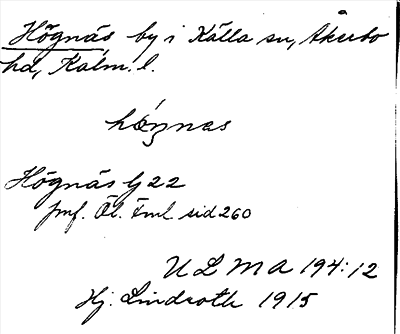 Högnäs by i Källa sn, Åkerbo
hd, Kalm. l.
Högnäs Gj 22
jmf. Öl. Fml. sid 260
ULMA 194:12
Hj. Lindroth 1915